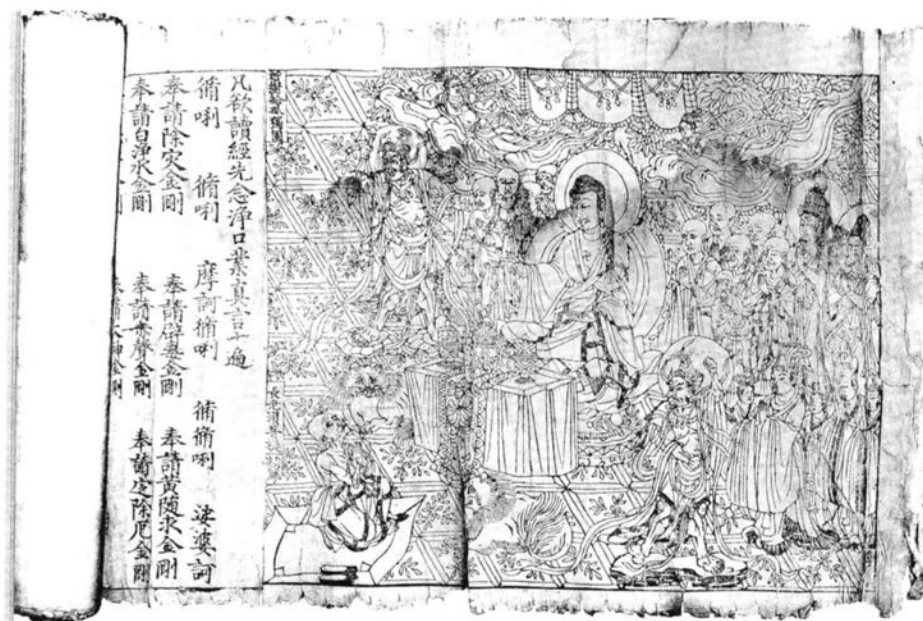 凡欲讀經先念淨口業真言一遍
脩唎 脩唎 摩訶脩唎 脩脩唎 娑婆訶
奉請除灾金剛 奉請辟毒金剛 奉請黃隨求金剛
奉請白淨水金剛 奉請赤聲金剛 奉請定除厄金剛
大神金剛